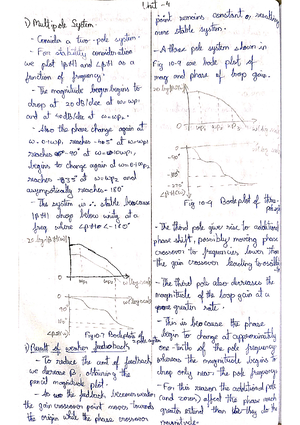 Unit - 4
i) Multipole System
- Consider a two-pole system.
- For stability consideration
we plot |βH| and ∠βH as a
function of frequency.
- The magnitude begins to
drop at 20 dB/dec at ω = ωp1
and at 40 dB/dec at ω = ωp2
- Also the phase change again at
reaches -45° at ω = ωp1
reaches -90° at
begins to change again at ω = 0.1ωp2
reaches -135° at ω = ωp2 and
asymptotically reaches -180°
- The system is ∴ stable because
|βH| drops below unity at a
freq where ∠βH < -180°
Fig 10.7 Bode plots of
2 pole system
i) Result of weaker feedback:
- To reduce the amt of feedback
we decrease β, obtaining the
magnitude plot.
- As the feedback becomes weaker
the gain crossover point moves towards
the origin while the phase crossover
point remains constant, resulting
more stable system.
- A three pole system shown in
Fig 10-9 are bode plot of
mag and phase of loop gain.
-90°
-180°
-270°
Fig 10-9 Bode plot of three-
- The third pole give rise to additional
phase shift, possibly moving phase
crossover to frequencies lower than
the gain crossover leading to
- The third pole also decreases the
magnitude of the loop gain at a
greater rate.
- This is because the phase
begin to change at approximately
one-tenth of the pole frequency
whereas the magnitude begins to
drop only near the pole frequency.
- For this reason the additional pole
(and zeros) affect the phase much
greater extent than they do the
magnitude.